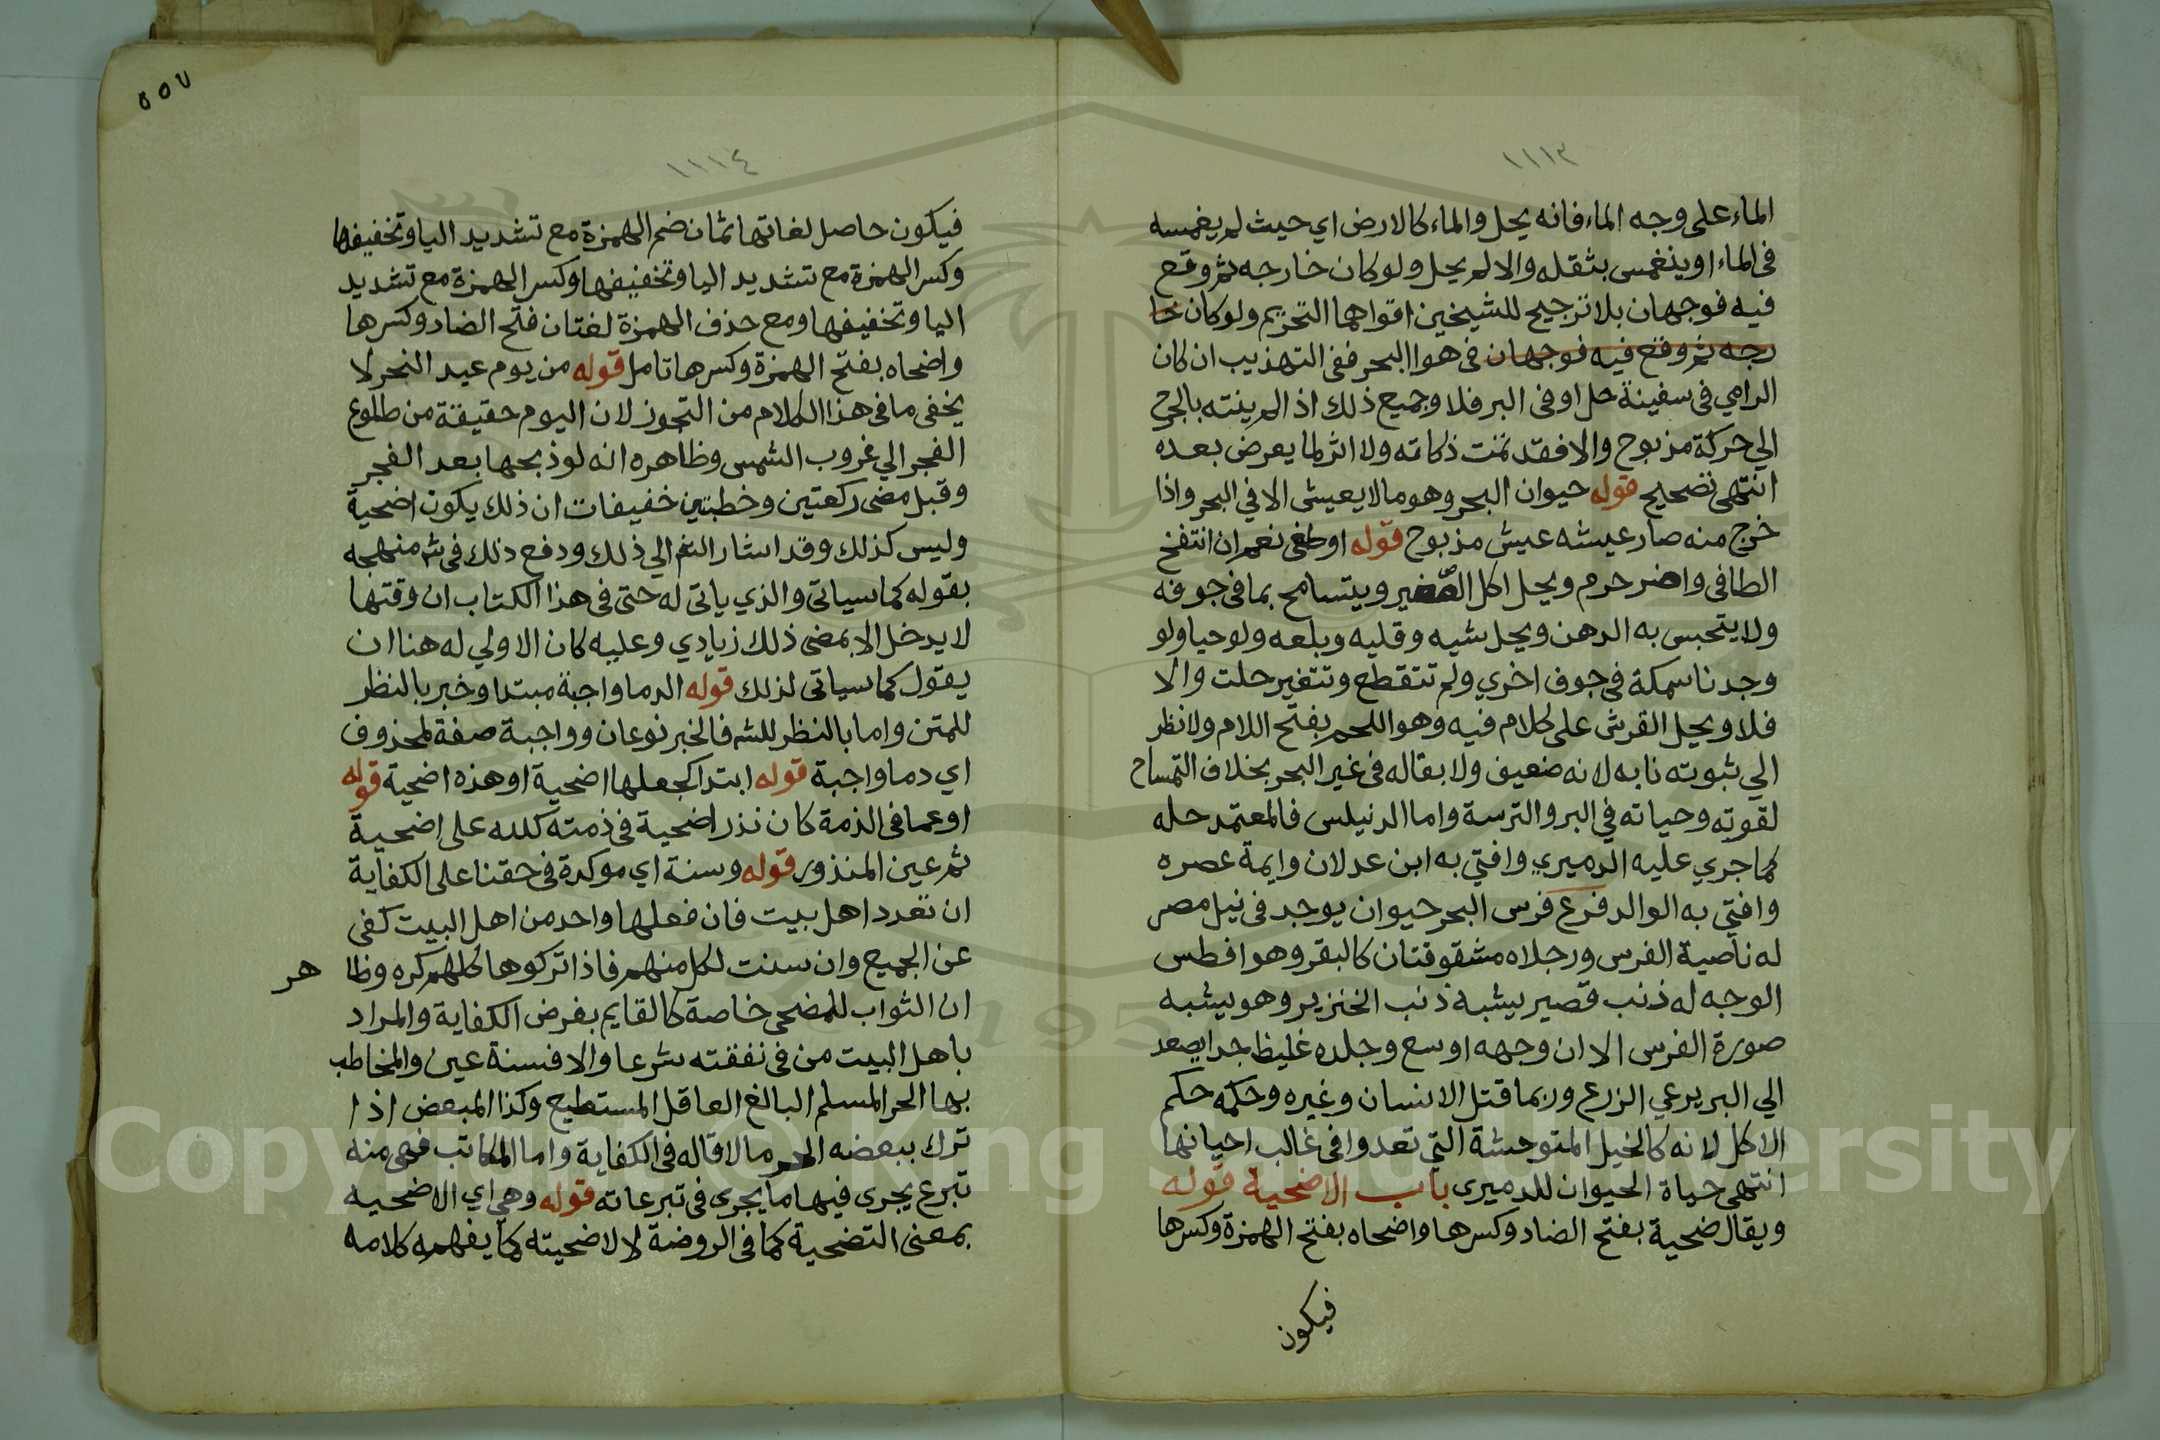 ١١١٣
الماء على وجه الماء فانه يحل والماء كالارض اي حيث لم يغمسه
فى الماء او ينغمس بثقله والا لم يحل ولو كان خارجه ثم وقع
فيه فوجهان بلا ترجيح للشيخين اقواهما التحريم ولو كان خا
رجه ثم وقع فيه فوجهان فى هوا البحر ففى التهذيب ان كان
الرامي فى سفينة حل او فى البر فلا وجميع ذلك اذا لم ينته بالجرح
الي حركة مذبوح والا فقد تمت ذكاته ولا اثر لما يعرض بعده
انتهى تصحيح قوله حيوان البحر وهو ما لا يعيش الا في البحر واذا
خرج منه صار عيشه عيش مذبوح قوله او طفى نعم ان انتفخ
الطافى واضر حرم ويحل اكل الصغير ويتسامح بما فى جوفه
ولا يتجس به الدهن ويحل شيه وقليه وبلعه ولو حيا ولو
وجدنا سمكة فى جوف اخري ولم تتقطع وتتغير حلت والا
فلا ويحل القرش على كلام فيه وهو اللخم بفتح اللام ولا نظر
الي ثبوته نابه لانه ضعيف ولا بقاله فى غير البحر بخلاف التمساح
لقوته وحياته في البر والترسة واما الدنيلس فالمعتمد حله
كما جري عليه الدميري وافتي به ابن عدلان وايمة عصره
وافتي به الوالد فرع فرس البحر حيوان يوجد فى نيل مصر
له ناصية الفرس ورجلاه مشقوقتان كالبقر وهو افطس
الوجه له ذنب قصير يشبه ذنب الخنزير وهو يشبه
صورة الفرس الا ان وجهه اوسع وجلده غليظ جدا يصعد
الي البر يرعي الزرع وربما قتل الانسان وغيره وحكمه حكم
الاكل لانه كالخيل المتوحشة التي تعدوا فى غالب احيانها
انتهى حياة الحيوان للدميرى باب الاضحية قوله
ويقال ضحية بفتح الضاد وكسرها واضحاه بفتح الهمزة وكسرها
فيكون
٥٥٧
١١١٤
فيكون حاصل لغاتها ثمان ضم الهمزة مع تشديد اليا وتخفيفها
وكسر الهمزة مع تشديد اليا وتخفيفها وكسر الهمزة مع تشديد
اليا وتخفيفها ومع حذف الهمزة لغتان فتح الضاد وكسرها
واضحاه بفتح الهمزة وكسرها تامل قوله من يوم عيد النحر لا
يخفى ما فى هذا الكلام من التجوز لان اليوم حقيقة من طلوع
الفجر الي غروب الشمس وظاهره انه لو ذبحها بعد الفجر
وقبل مضى ركعتين وخطبتين خفيفات ان ذلك يكون اضحية
وليس كذلك وقد اشار الشم الي ذلك ودفع ذلك فى شم منهجه
بقوله كما سياتى والذي ياتى له حتى فى هذا الكتاب ان وقتها
لا يدخل الا بمضى ذلك زيادي وعليه كان الاولي له هنا ان
يقول كما سياتى لذلك قوله الدما واجبة مبتدا وخبر بالنظر
للمتن واما بالنظر للشم فالخبر نوعان وواجبة صفة لمحذوف
اي دما واجبة قوله ابتدا كجعلها اضحية او هذه اضحية قوله
او عما فى الذمة كان نذر اضحية فى ذمته كلله على اضحية
ثم عين المنذور قوله وسنة اي موكدة فى حقنا على الكفاية
ان تعدد اهل بيت فان فعلها واحد من اهل البيت كفى
عن الجميع وان سنت لكل منهم فاذا تركوها كلهم كره وظا هر
ان الثواب للمضحى خاصة كالقايم بفرض الكفاية والمراد
باهل البيت من فى نفقته شرعا والا فسنة عين والمخاطب
بها الحر المسلم البالغ العاقل المستطيع وكذا المبعض اذا
ترك ببعضه الحر مالا قاله فى الكفاية واما المكاتب فهى منه
تبرع يجرى فيها ما يجرى فى تبرعاته قوله وهي اي الاضحيه
بمعنى التضحية كما فى الروضة لا لاضحيته كما يفهمه كلامه
Copyright © King Saud University
195